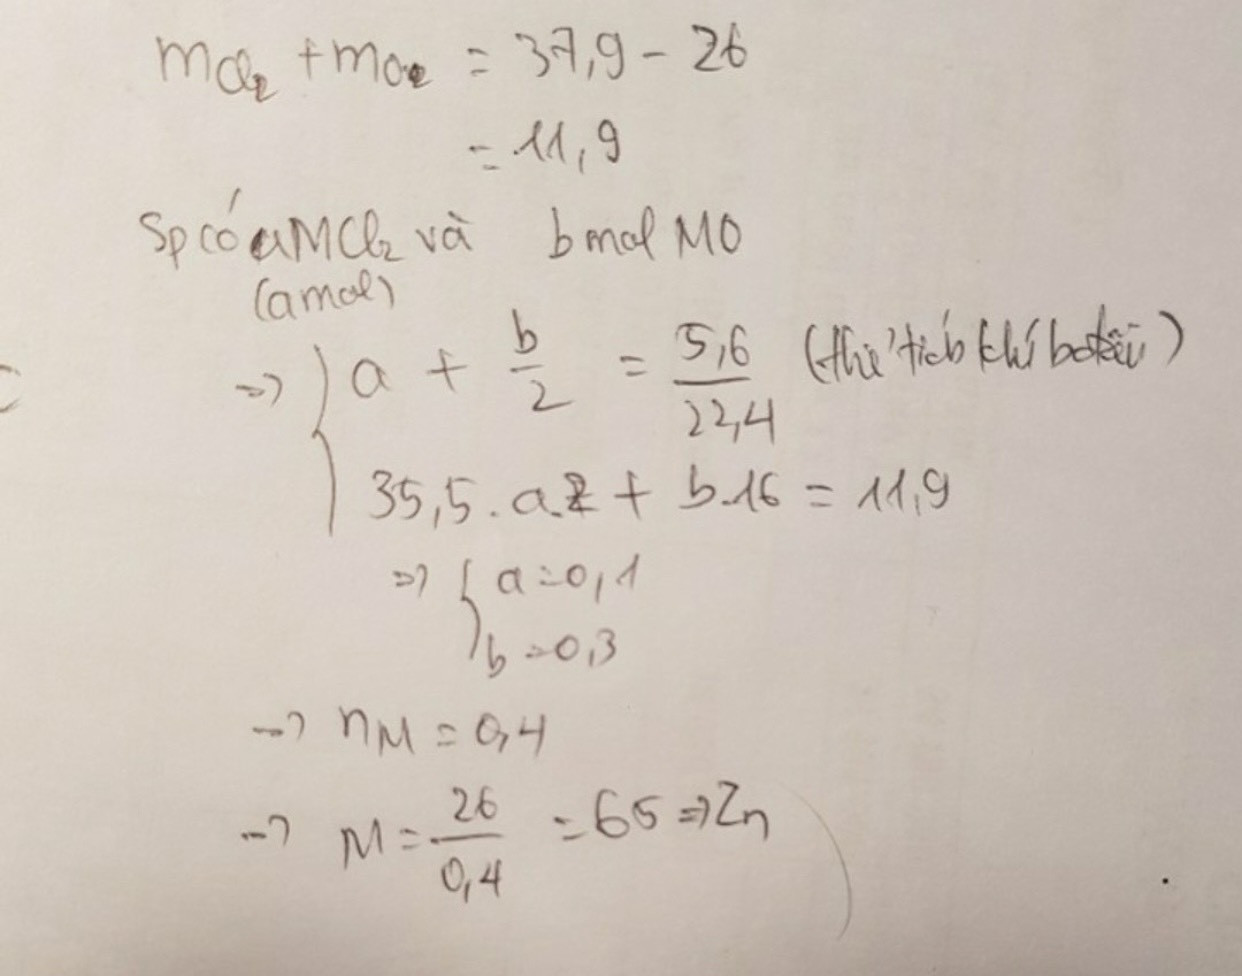 mCl₂ + mO₂ = 37,9 - 26
= 11,9
Sp có aMCl₂ và b mol MO
(a mol)
=> { a + b/2 = 5,6/22,4 (thể tích khí bđầu)
35,5.a.2 + b.16 = 11,9
=> { a = 0,1
b = 0,3
-> nM = 0,4
-> M = 26/0,4 = 65 => Zn